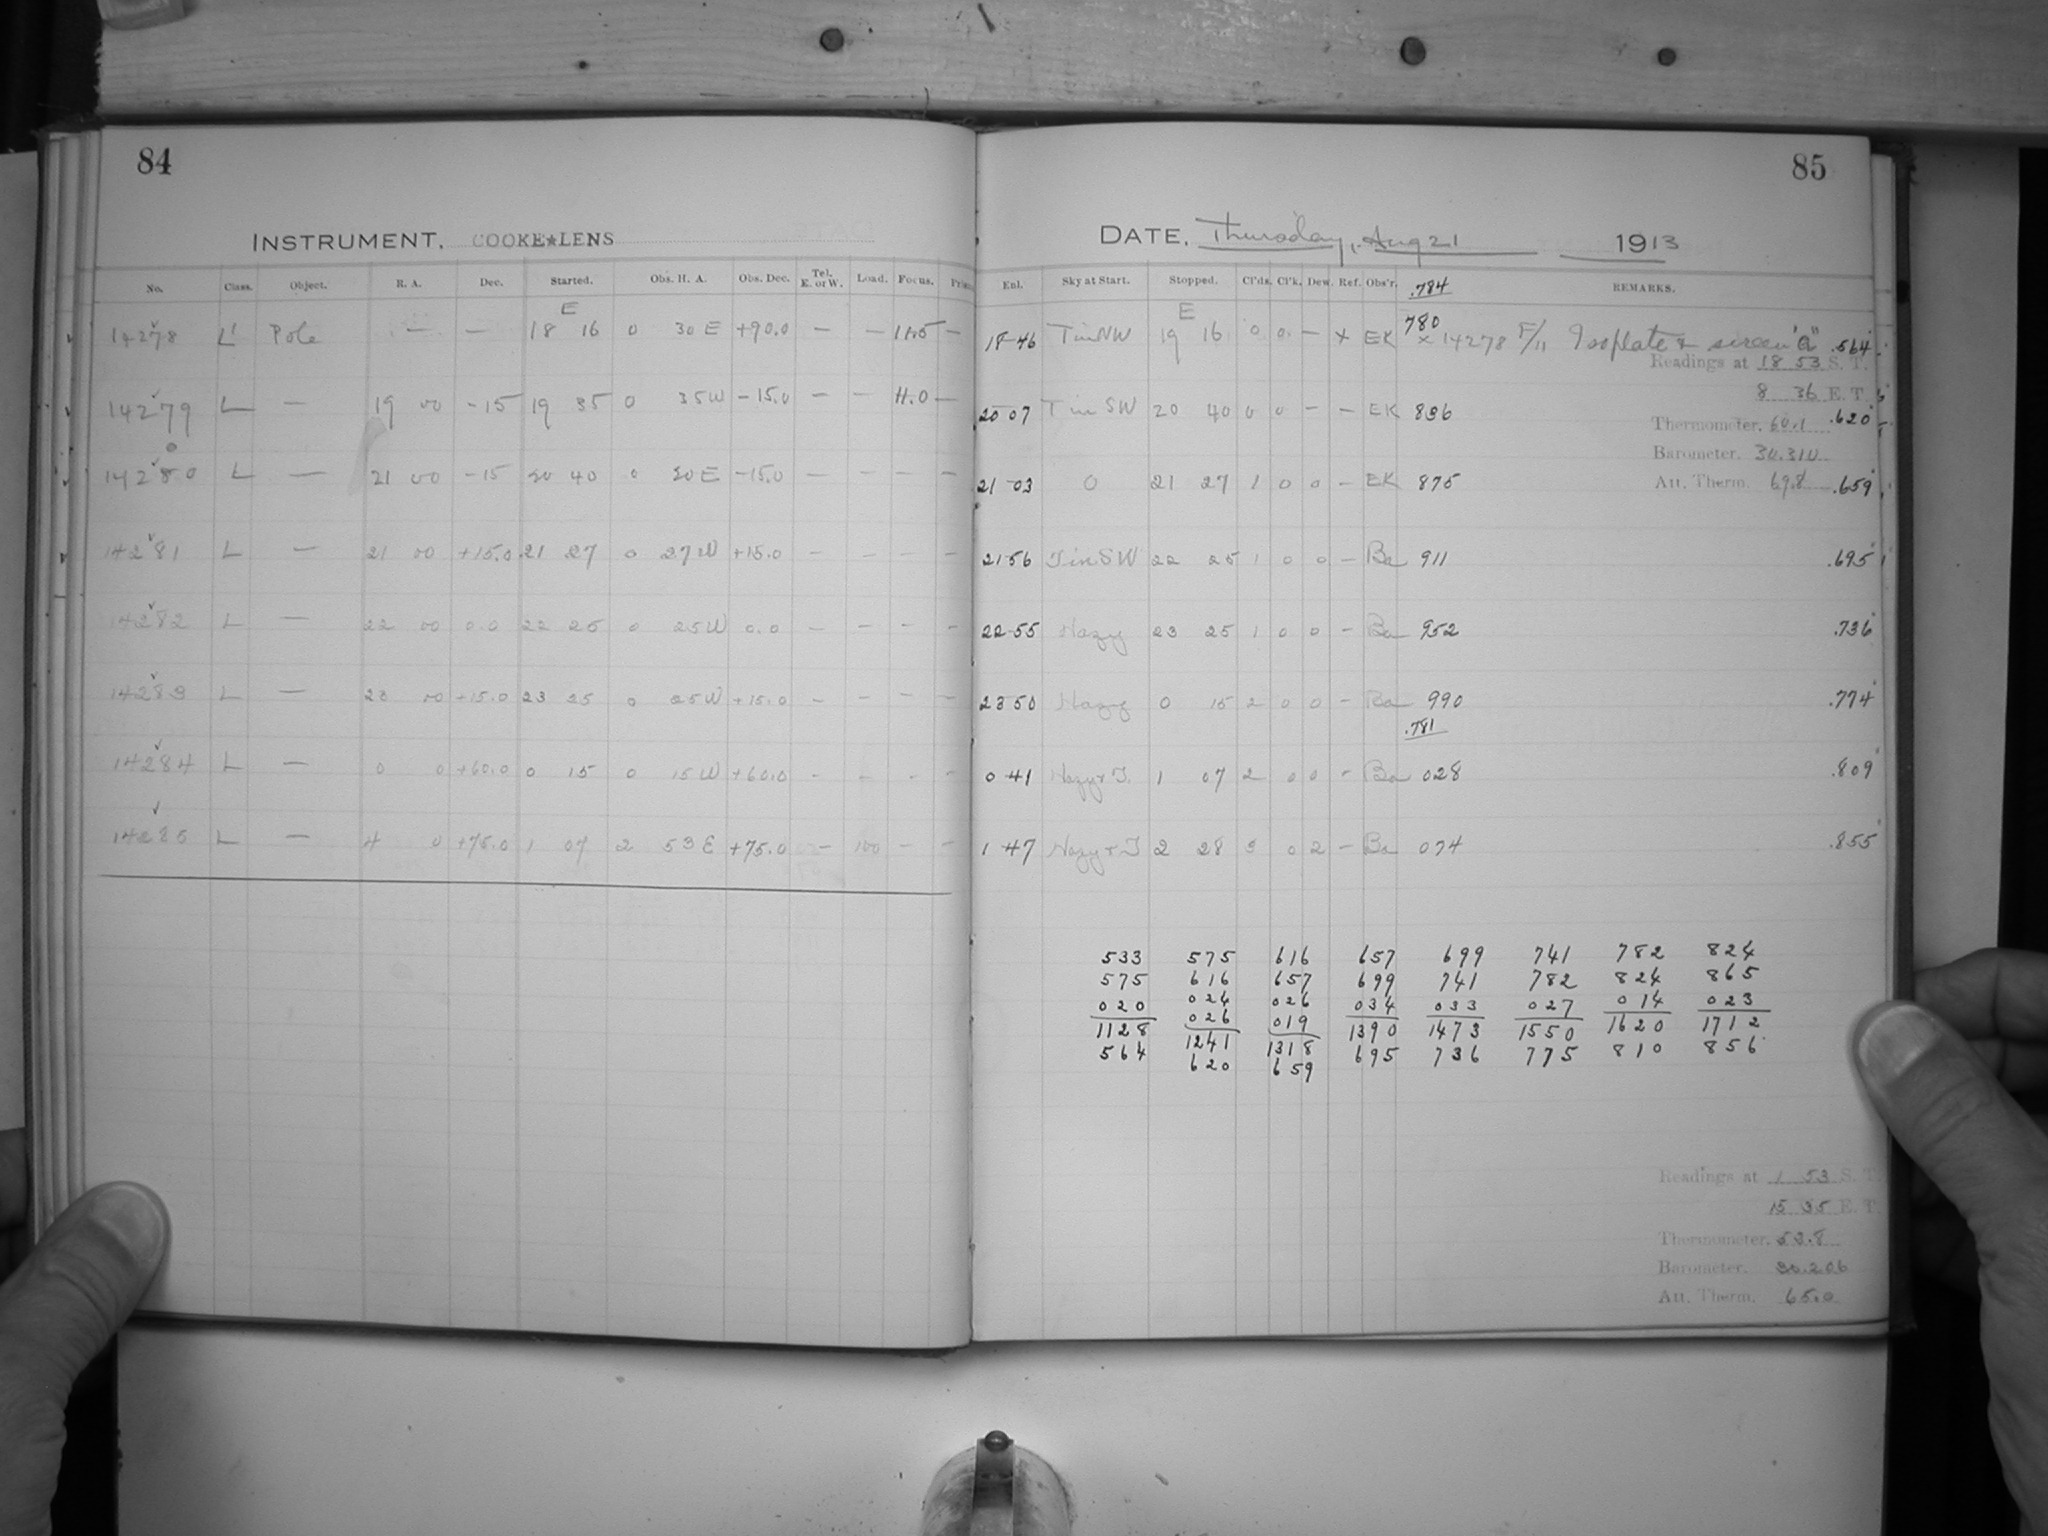 84
INSTRUMENT. COOKE★LENS
No. Class. Object. R. A. Dec. Started. Obs. H. A. Obs. Dec. Tel. E. or W. Load. Focus.
E
14278 L Pole — — 18 16 0 30 E +90.0 — — 11.5 —
14279 L — 19 00 -15 19 35 0 35W -15.0 — — H.0 —
14280 L — 21 00 -15 20 40 0 20 E -15.0 — — — —
14281 L — 21 00 +15.0 21 27 0 27 W +15.0 — — — —
14282 L — 22 00 0.0 22 25 0 25W 0.0 — — — —
14283 L — 23 00 +15.0 23 25 0 25W +15.0 — — — —
14284 L — 0 0 +60.0 0 15 0 15W +60.0 — — — —
14285 L — 4 0 +75.0 1 07 2 53 E +75.0 — 100 — —
85
DATE. Thursday, Aug 21 1913
Enl. Sky at Start. Stopped. Cl'ds. Cl'k. Dew. Ref. Obs'r. .784 REMARKS.
E 780
18 46 T in NW 19 16 0 0 — x EK x 14278 F/11 Isoplate & screen "a" .564
Readings at 18 53 S. T.
8 36 E. T.
20 07 T in SW 20 40 0 0 — — EK 836 .620
Thermometer. 60.1
Barometer. 30.310
21 03 0 21 27 1 0 0 — EK 875 .659
Att. Therm. 69.8
21 56 T in SW 22 25 1 0 0 — Ba 911 .695
22 55 Hazy 23 25 1 0 0 — Ba 952 .736
23 50 Hazy 0 15 2 0 0 — Ba 990 .774
.781
0 41 Hazy & T. 1 07 2 0 0 — Ba 028 .809
1 47 Hazy & T 2 28 3 0 2 — Ba 074 .855
533 575 616 657 699 741 782 824
575 616 657 699 741 782 824 865
020 024 026 034 033 027 014 023
026 019
1128 1241 1318 1390 1473 1550 1620 1712
564 620 659 695 736 775 810 856
Readings at 1 53 S. T.
15 35 E. T.
Thermometer. 53.8
Barometer. 30.206
Att. Therm. 65.0